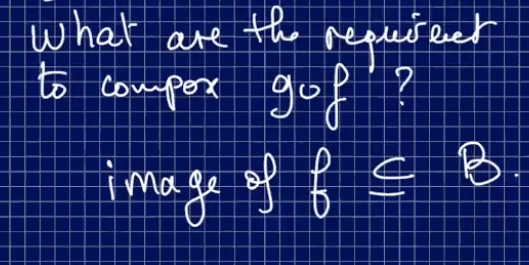 What are the requirement
to compose gof ?
image of f ⊆ B.